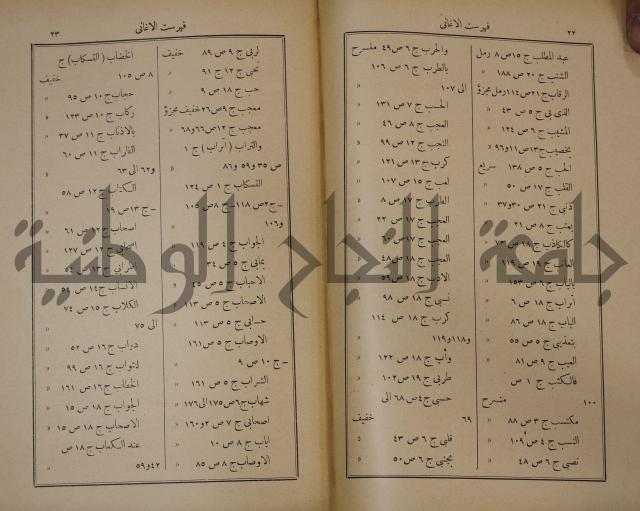 ٢٢
فهرست الاغانى
عبد المطلب ج ١٥ص ٨ رمل
الشنب ج ٢٠ ص ١٨٨ »
الرقاب ج ٢١ص١١٤رمل مجزؤ
الذى بى ج ٥ ص ٤٣ »
المشيب ج ٦ ص ١٢٤ »
بخضيب ج١٣ص١١و٩٦ »
الحب ج ٥ ص ١٣٨ سريع
القلب ج ١٧ ص ٥٠ »
ذنبى ج ٢١ ص ٣٠و٣٧
يعتب ج ٨ ص ٢١
كالكاذب ج ١٨ ص ٧٣
العاتب ج ١٩ ص ١١٩
بالباب ج ٦ ص ١٥٣
أتراب ج ١٨ ص ٦ »
الباب ج ١٨ ص ٨٦ »
بتعذيبى ج ٥ ص ٥٥ »
العيب ج ٩ ص ٨١ »
فالكثب ج ١ ص
١٠٠ منسرح
مكتسب ج ٣ ص ٨٨ »
النسب ج ٤ ص ١٠٩ »
نصبى ج ٦ ص ٤٨ »
والحرب ج ٦ ص ٤٩ منسرح
بالطرب ج ٦ ص ١٠٦
الى ١٠٧ »
الحسب ج ٧ ص ١٣١ »
العجب ج ٨ ص ٤٦ »
النجب ج ١٢ ص ٩٩ »
كرب ج ١٣ ص ١٢١ »
لعب ج ١٥ ص ١٠٧ »
الطرب ج ١٧ ص ٨ »
العجب ج ١٧ ص ٢٢
العجب ج ١٧ ص ٦٠
العجب ج ١٨ ص ٤٨
الادب ج ١٨ ص ٥٩
نسبى ج ١٨ ص ٩٨ »
كرب ج ١٨ ص ١١٤
و١١٨و١١٩ »
وأب ج ١٨ ص ١٢٢ »
طربى ج ١٩ ص ١٠٢ »
حسبى ج ٤ ص ٦٨ الى
٦٩ خفيف
قلبى ج ٦ ص ٤٣ »
بجنبى ج ٦ ص ٥٠ »
فهرست الاغانى
٢٣
لربى ج ٩ ص ٨٩ خفيف
نحبى ج ١٢ ج ٩١ »
حب ج ١٨ ص ٩ »
معجب ج ٩ ص٢٦ خفيف مجزؤ
معجب ج ١٢ ص٦٦و٦٨ »
والتراب (أتراب) ج ١
ص ٣٥ و٥٩ و٨٦ »
التسكاب ج ١ ص ١٣٤
ـ ج ٢ص ١١٨ ـ ج ٨ص ١٠٥
و١٠٦ »
الجواب ج ٤ ص ١١٩
بمابى ج ٥ ص ٣٤
الاحباب ج ٥ ص ٤٥
الاوصاب ج ٥ ص ١١٣
حسابى ج ٥ ص ١١٣ »
الاوصاب ج ٥ ص١٦١
ـ ج ١٠ ص ٩ »
الشراب ج ٥ ص ١٦١ »
شهاب ج٦ص١٧٥الى١٧٦ »
اصحابى ج ٧ ص ٢و١٦٠ »
اياب ج ٨ ص ١٠ »
الاوصاب ج ٨ ص ٨٥ »
الخضاب (التسكاب) ج
٨ ص ١٠٥ خفيف
حجاب ج ١٠ ص ٩٥ »
ركاب ج ١٠ ص ١٢٣ »
بالاذناب ج ١١ ص ٣٧ »
القاراب ج ١١ ص ٦٠
و٦٢ الى ٦٣ »
الكتاب ج ١٢ ص ٥٨
ـ ج ١٣ ص ١٩ »
اصحاب ج ١٢ ص ٦١
اصحابى ج ١٢ ص ١٢٧
الانساب ج ١٤ ص ٥٤
الكلاب ج ١٥ ص ٧٤
الى ٧٥ »
ذباب ج ١٦ ص ٥٢ »
لثواب ج ١٦ ص ٩٩ »
الخطاب ج ١٦ ص ١٦١ »
الجواب ج ١٨ ص ١٥ »
الاصحاب ج ١٨ ص ١٥ »
عند الكعاب ج ١٨ ص
٤٢و٥٩ »
جامعة النجاح الوطنية